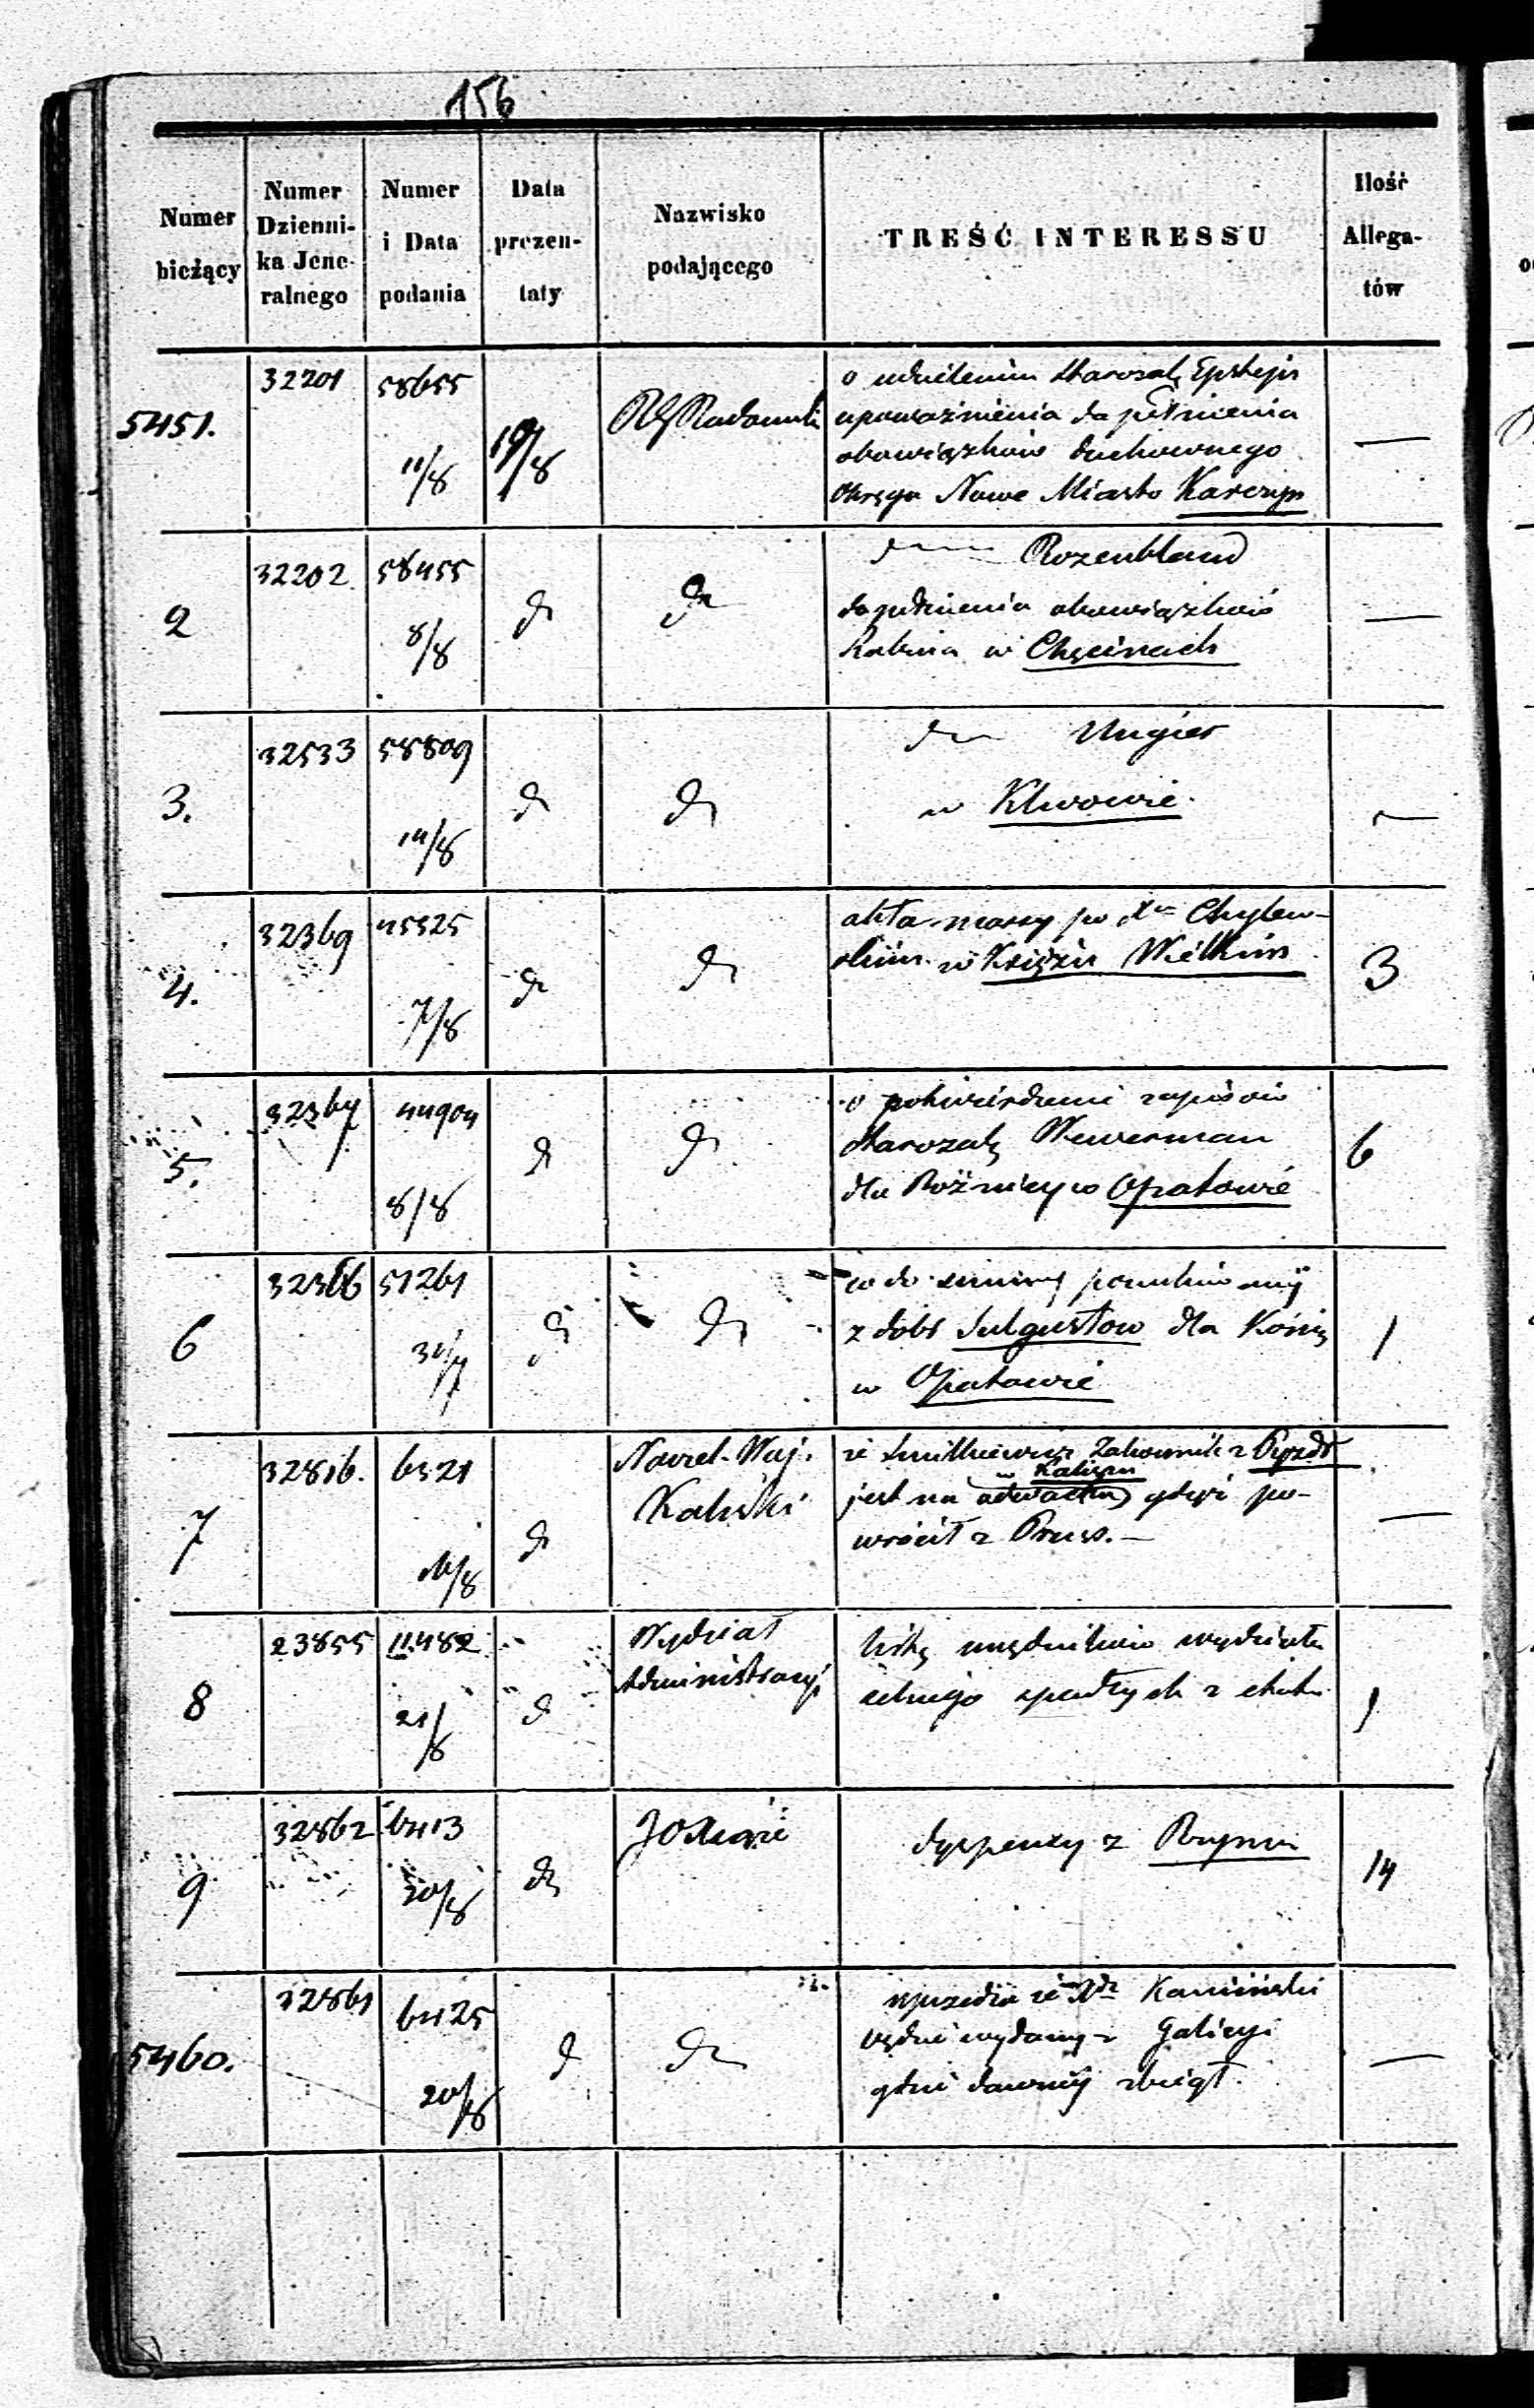 156
Numer bieżący
Numer Dzienni- ka Jene- ralnego
Numer i Data podania
Data prezen- taty
Nazwisko podającego
TREŚĆ INTERESSU
Ilość Allega- tów
5451.
32201
58655
11/8
19/8
RG Radomski
o udzieleniu Starozak Epsztejn
upoważnienia do pełnienia
obowiązków duchownego
Okręgu Nowe Miasto Korczyn
—
2
32202
58455
8/8
do
do
do Rozenbland
do pełnienia obowiązków
Rabina w Chęcinach
—
3.
32533
58809
14/8
do
do
do Ungier
w Klwowie.
—
4.
32369
45525
7/8
do
do
akta massy po Xu Chylew-
skim w Książu Wielkim
3
5.
32367
44904
8/8
do
do
o potwierdzenie zapisów
Starozak Wewerman
dla Bóżnicy w Opatowie
6
6
32366
51261
31/7
do
do
z dóbr Sulgustow dla
w Opatowie
1
7
32816.
6521
do
Naczel. Woj.
Kaliski
że Zakonnik z Pyzdr
w Kaliszu
jest na odwachu gdyż po-
wrócił z Pruss. —
—
8
23855
11482
21/8
do
Wydział
Administracyi
listę urzędników wydziału
spadłych z etatu
1
9
32862
6413
20/8
do
JO Xiąże
dyspensy z Rzymu
14
5460.
32861
6425
20/8
do
do
uprzedza że Xdz Kamiński
będzie wydany z Galicyi
gdzie dawniej zbiegł.
—